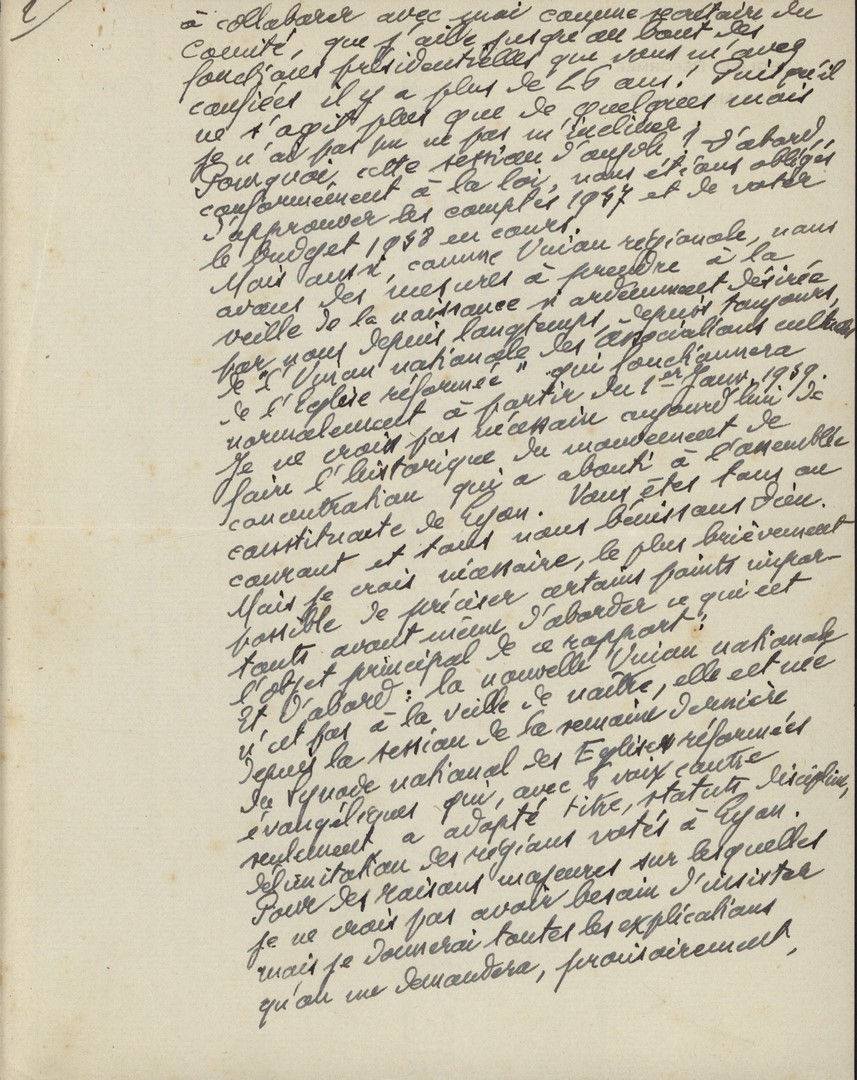 2/
à collaborer avec moi comme secrétaire du
Comité, que j'aille jusqu'au bout des
fonctions présidentielles que vous m'avez
confiées il y a plus de 26 ans ! Puisqu'il
ne s'agit plus que de quelques mois
je n'ai pas pu ne pas m'incliner !
Pourquoi cette session d'aujoh ? D'abord,
conformément à la loi, nous étions obligés
d'approuver les comptes 1937 et de voter
le budget 1938 en cours.
Mais aussi, comme Union régionale, nous
avons des mesures à prendre à la
veille de la naissance si ardemment désirée
par nous depuis longtemps, depuis toujours,
de "l'Union nationale des associations cultuelles
de l'Eglise réformée" qui fonctionnera
normalement à partir du 1er Janv. 1939.
Je ne crois pas nécessaire aujourd'hui de
faire l'historique du mouvement de
concentration qui a abouti à l'assemblée
constituante de Lyon. Vous êtes tous au
courant et tous nous bénissons Dieu.
Mais je crois nécessaire, le plus brièvement
possible de préciser certains points impor-
tants avant même d'aborder ce qui est
l'objet principal de ce rapport :
Et d'abord : la nouvelle Union nationale
n'est pas à la veille de naître, elle est née
depuis la session de la semaine dernière
du Synode national des Eglises réformées
évangéliques qui, avec 4 voix contre
seulement a adopté titre, statuts, discipline,
délimitation des régions votés à Lyon.
Pour des raisons majeures sur lesquelles
je ne crois pas avoir besoin d'insister
mais je donnerai toutes les explications
qu'on me demandera, provisoirement,